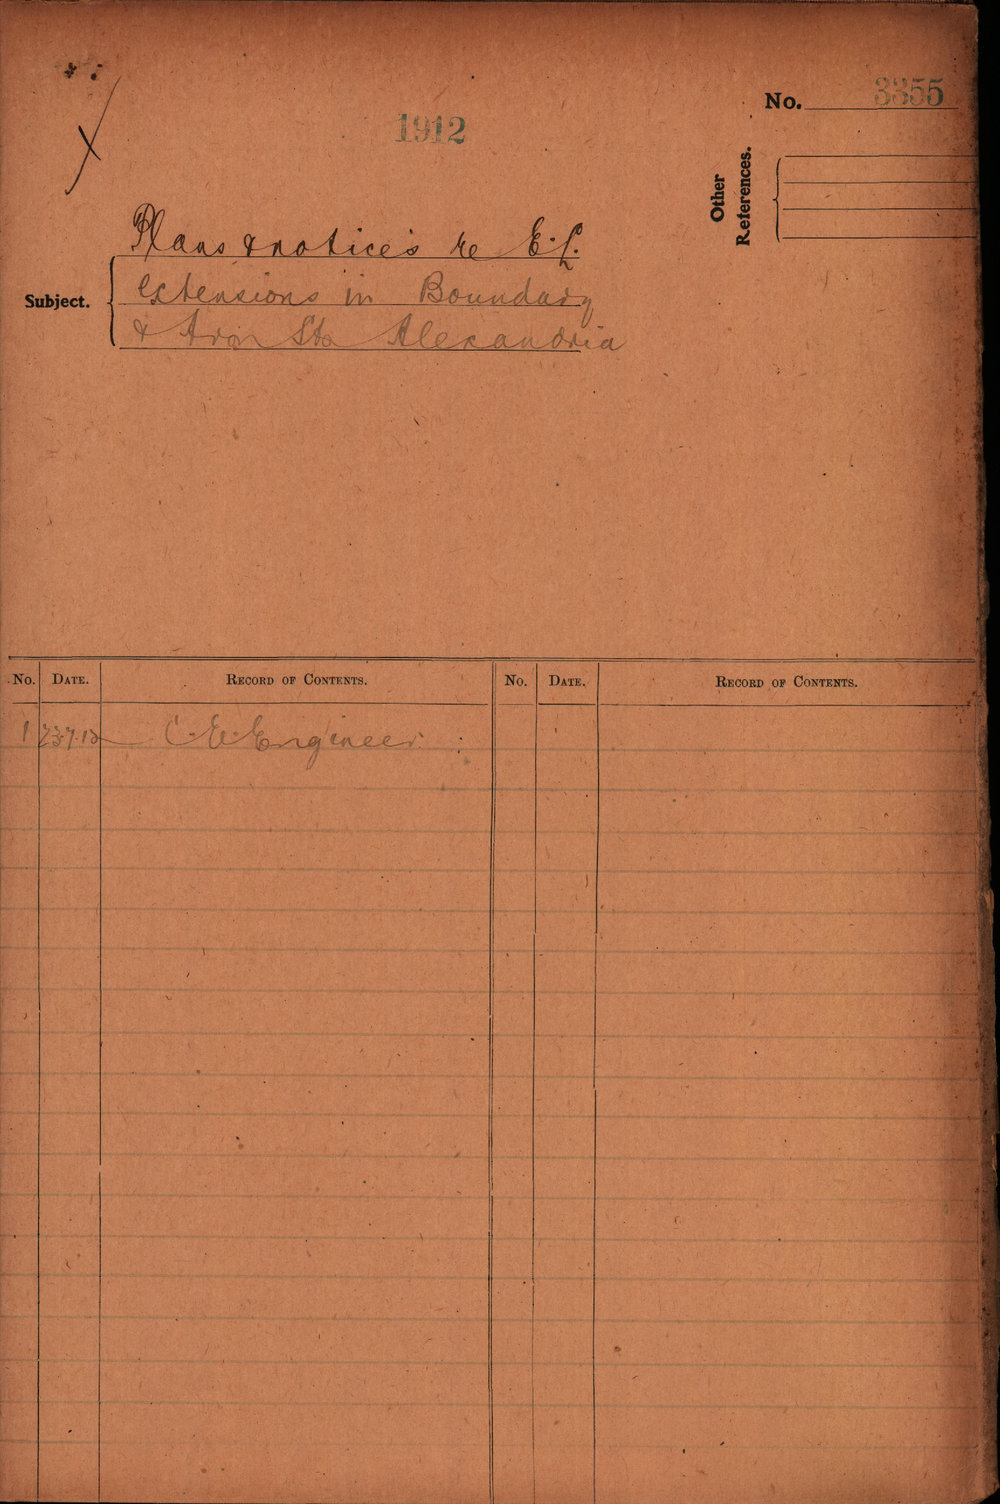 No. 3355
1912
Other
References.
Plans & notices re E.L.
Subject.
extensions in Boundary
& Avon Sts Alexandria
No. DATE. RECORD OF CONTENTS. No. DATE. RECORD OF CONTENTS.
1 23.7.12 C. E. Engineer